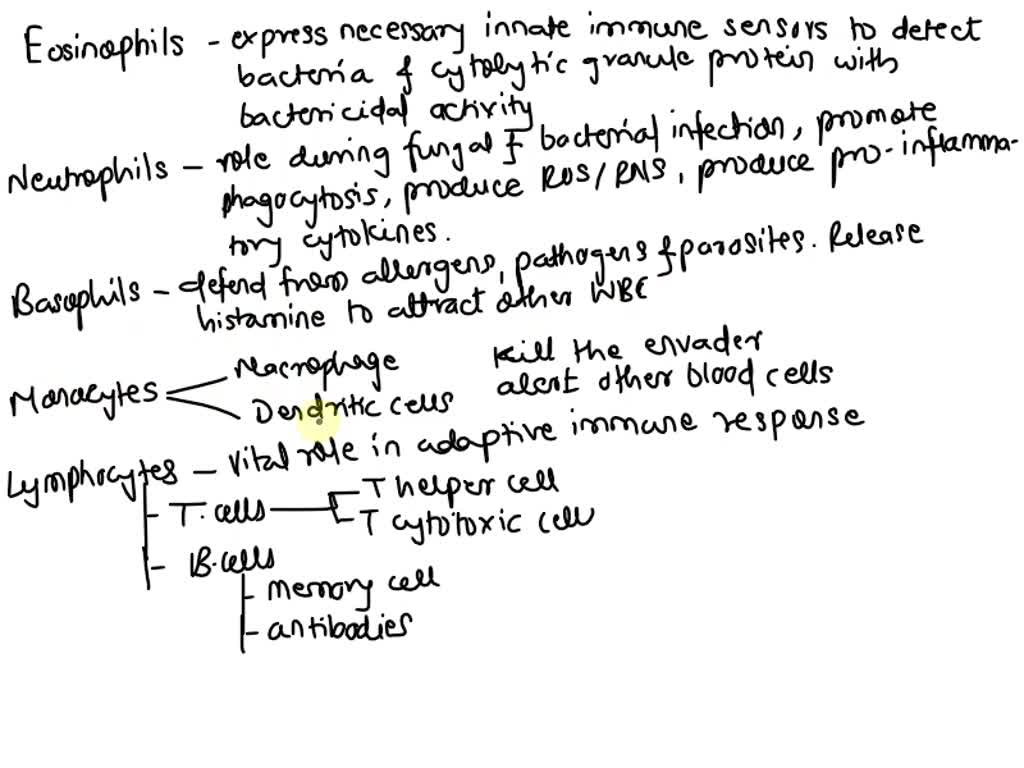 Eosinophils - express necessary innate immune sensors to detect
bacteria & cytolytic granule protein with
bactericidal activity
Neutrophils - role during fungal & bacterial infection, promote
phagocytosis, produce ROS/RNS, produce pro-inflamma-
tory cytokines.
Basophils - defend from allergens, pathogens & parasites. Release
histamine to attract other WBC
Monocytes
Macrophage
Dendritic cells
Kill the envader
alert other blood cells
Lymphocytes - vital role in adaptive immune response
- T. cells
T helper cell
T cytotoxic cell
- B. cells
- memory cell
- antibodies